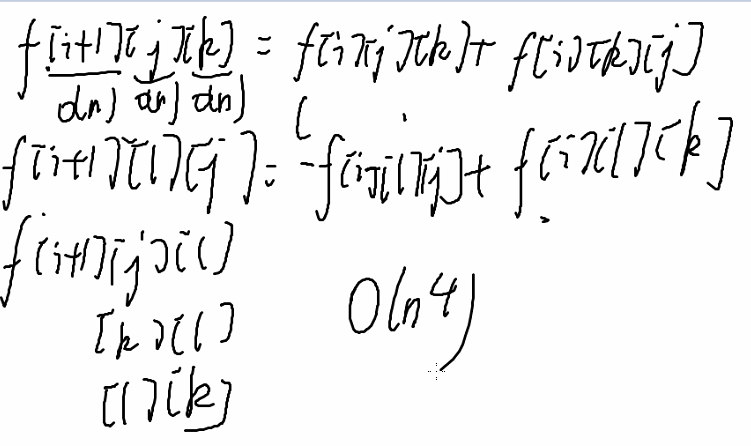 f[i+1][j][k] = f[i][j][k] + f[i][k][j]
O(n) O(n) O(n)
f[i+1][l][j] = f[i][l][j] + f[i][l][k]
f[i+1][j][l]
[k][l]
[l][k]
O(n4)